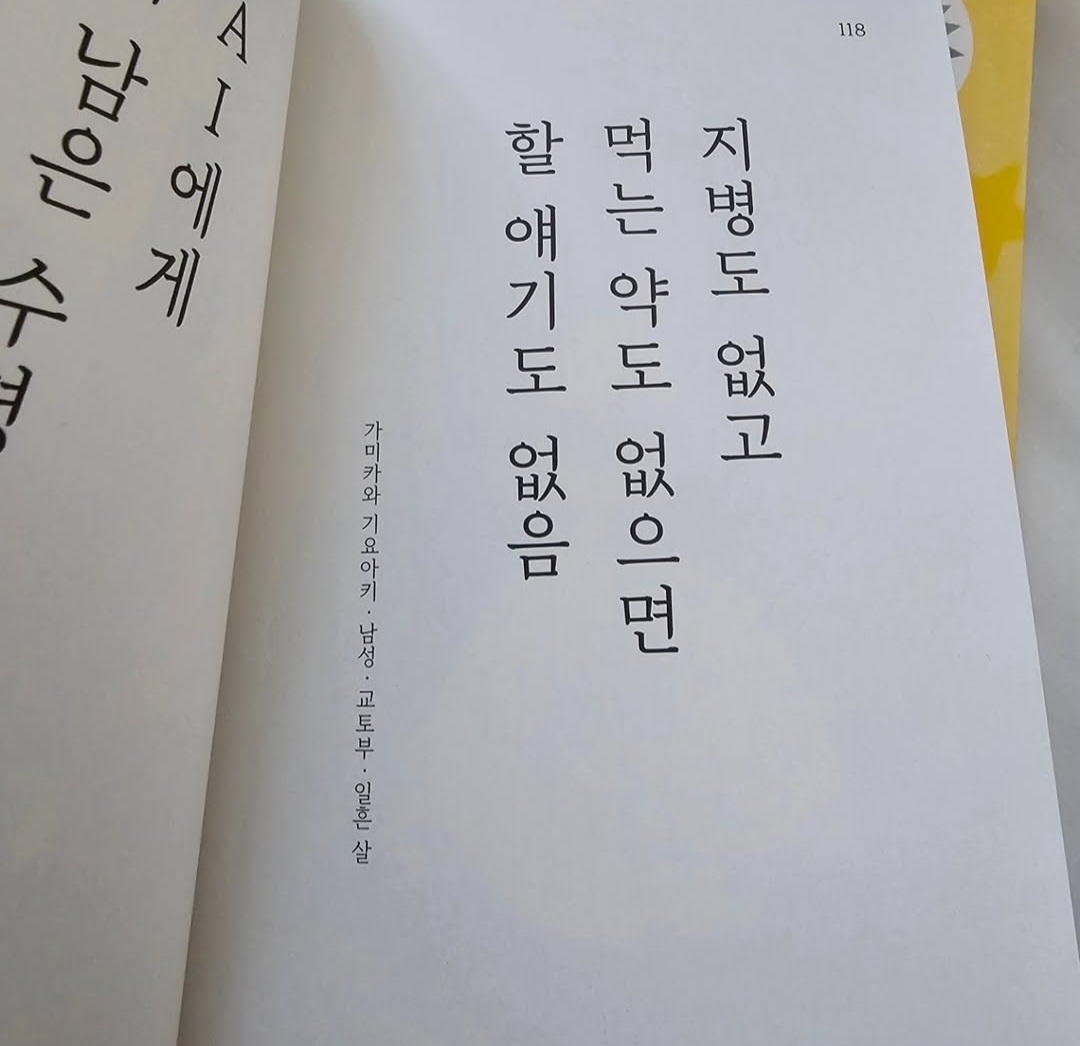 118
지병도 없고
먹는 약도 없으면
할 얘기도 없음
가미카와 기요아키·남성·교토부·일흔 살
AI에게
남은 수명